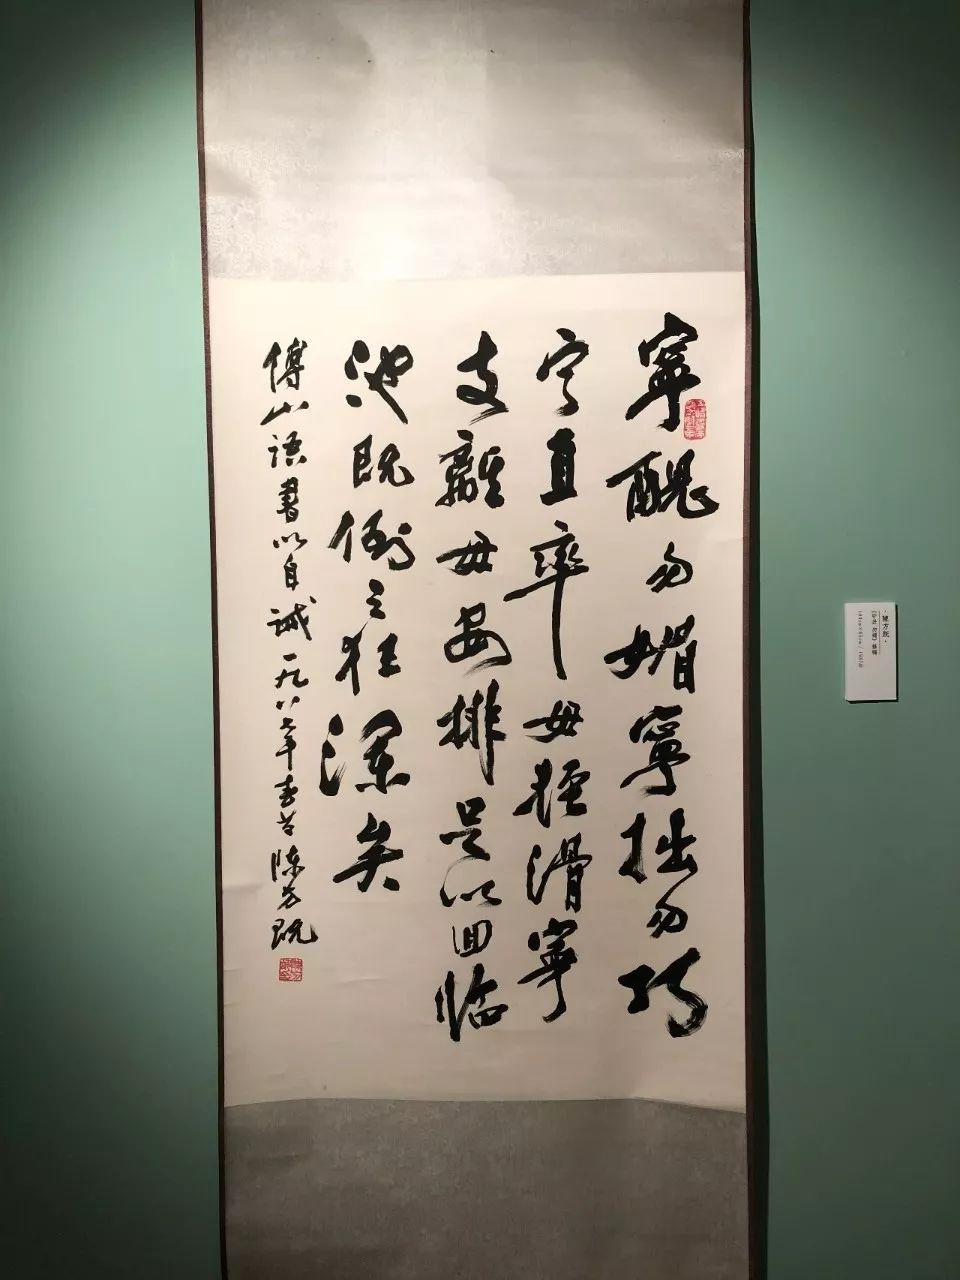 寧醜勿媚寧拙勿巧
宁直率毋輕滑寧
支離毋安排足以回临
池既倒之狂澜矣
傅山语書以自诫一九八七年春节陈方既
·陳方既·